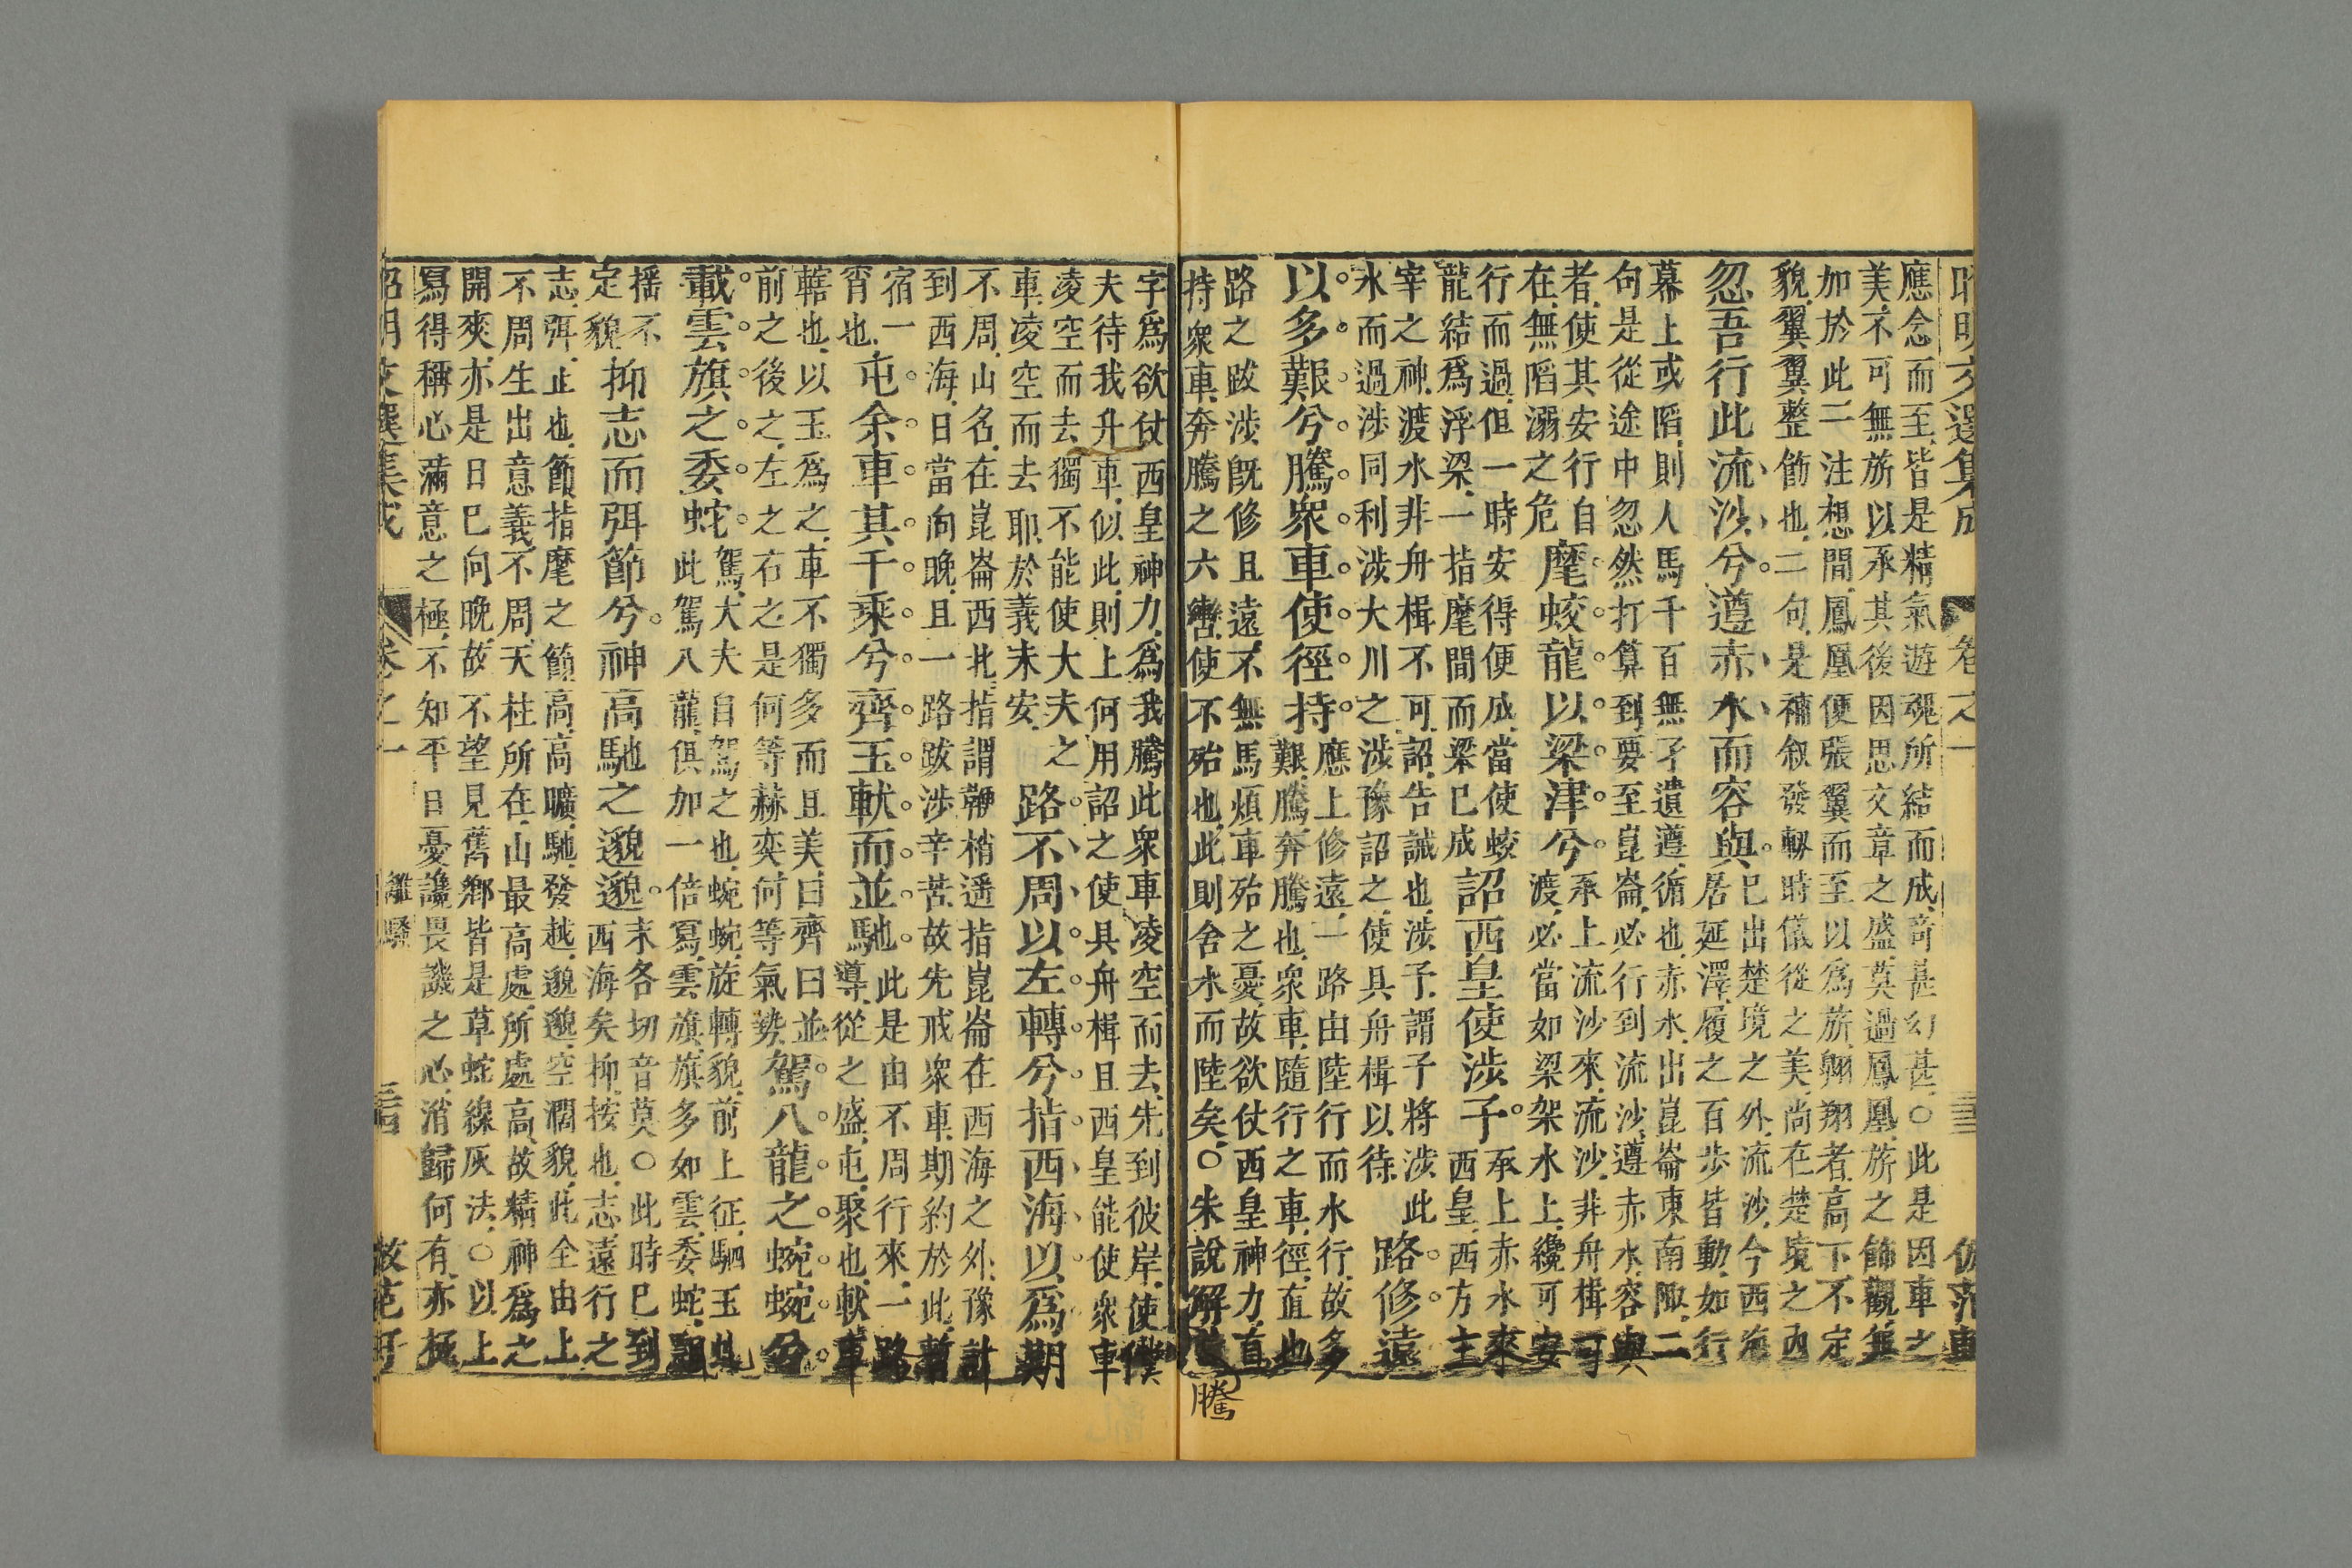 應念而至皆是精氣遊魂所結而成奇甚幻甚○此是因車之
美不可無旂以承其後因思文章之盛莫過鳳凰旂之飾觀無
加於此二注想間鳳凰便張翼而至以爲旂翱翔者高下不定
貌翼翼整飭也二句是補叙發軔時儀從之美尚在楚境之内
忽吾行此流沙兮遵赤水而容與
已出楚境之外流沙今西海
居延澤履之百步皆動如行
幕上或陷則人馬千百無孑遺遵循也赤水出崑崙東南陬二
句是從途中忽然打算到要至崑崙必行到流沙遵赤水容與
者使其安行自
在無陷溺之危
麾蛟龍以梁津兮
承上流沙來流沙非舟楫可
渡必當如梁架水上纔可安
行而過但一時安得便成當使蛟
龍結爲浮梁一指麾間而梁已成
詔西皇使涉予
承上赤水來
西皇西方主
宰之神渡水非舟楫不可詔告誡也涉予謂予將涉此
水而過涉同利涉大川之涉豫詔之使具舟楫以待
路修遠
以多艱兮騰衆車使徑持
應上修遠一路由陸行而水行故多
艱騰奔騰也衆車隨行之車徑直也
路之跋涉旣修且遠不無馬煩車殆之憂故欲仗西皇神力直
持衆車奔騰之六轡使不殆也此則舍水而陸矣○朱說解
騰
字爲欲仗西皇神力爲我騰此衆車凌空而去先到彼岸使僕
夫待我升車似此則上何用詔之使具舟楫且西皇能使衆車
凌空而去獨不能使大夫之
車凌空而去耶於義未安
路不周以左轉兮指西海以爲期
不周山名在崑崙西北指謂鞭梢遥指崑崙在西海之外豫計
到西海日當向晚且一路跋涉辛苦故先戒衆車期約於此暫
宿一
宵也
屯余車其千乘兮齊玉軑而並馳
此是由不周行來一路
導從之盛屯聚也軑車
轄也以玉爲之車不獨多而且美曰齊曰並
前之後之左之右之是何等赫奕何等氣勢
駕八龍之蜿蜿兮
載雲旗之委蛇
駕大夫自駕之也蜿蜿旋轉貌前上征駟玉虬
此駕八龍俱加一倍寫雲旗旗多如雲委蛇
摇不
定貌
抑志而弭節兮神高馳之邈邈
末各切音莫○此時已到
西海矣抑按也志遠行之
志弭止也節指麾之節高高曠馳發越邈邈空濶貌此全由上
不周生出意義不周天柱所在山最高處所處高故精神爲之
開爽亦是日已向晚故不望見舊鄕皆是草蛇線灰法○以上
寫得稱心滿意之極不知平日憂讒畏譏之心消歸何有亦極
離騷